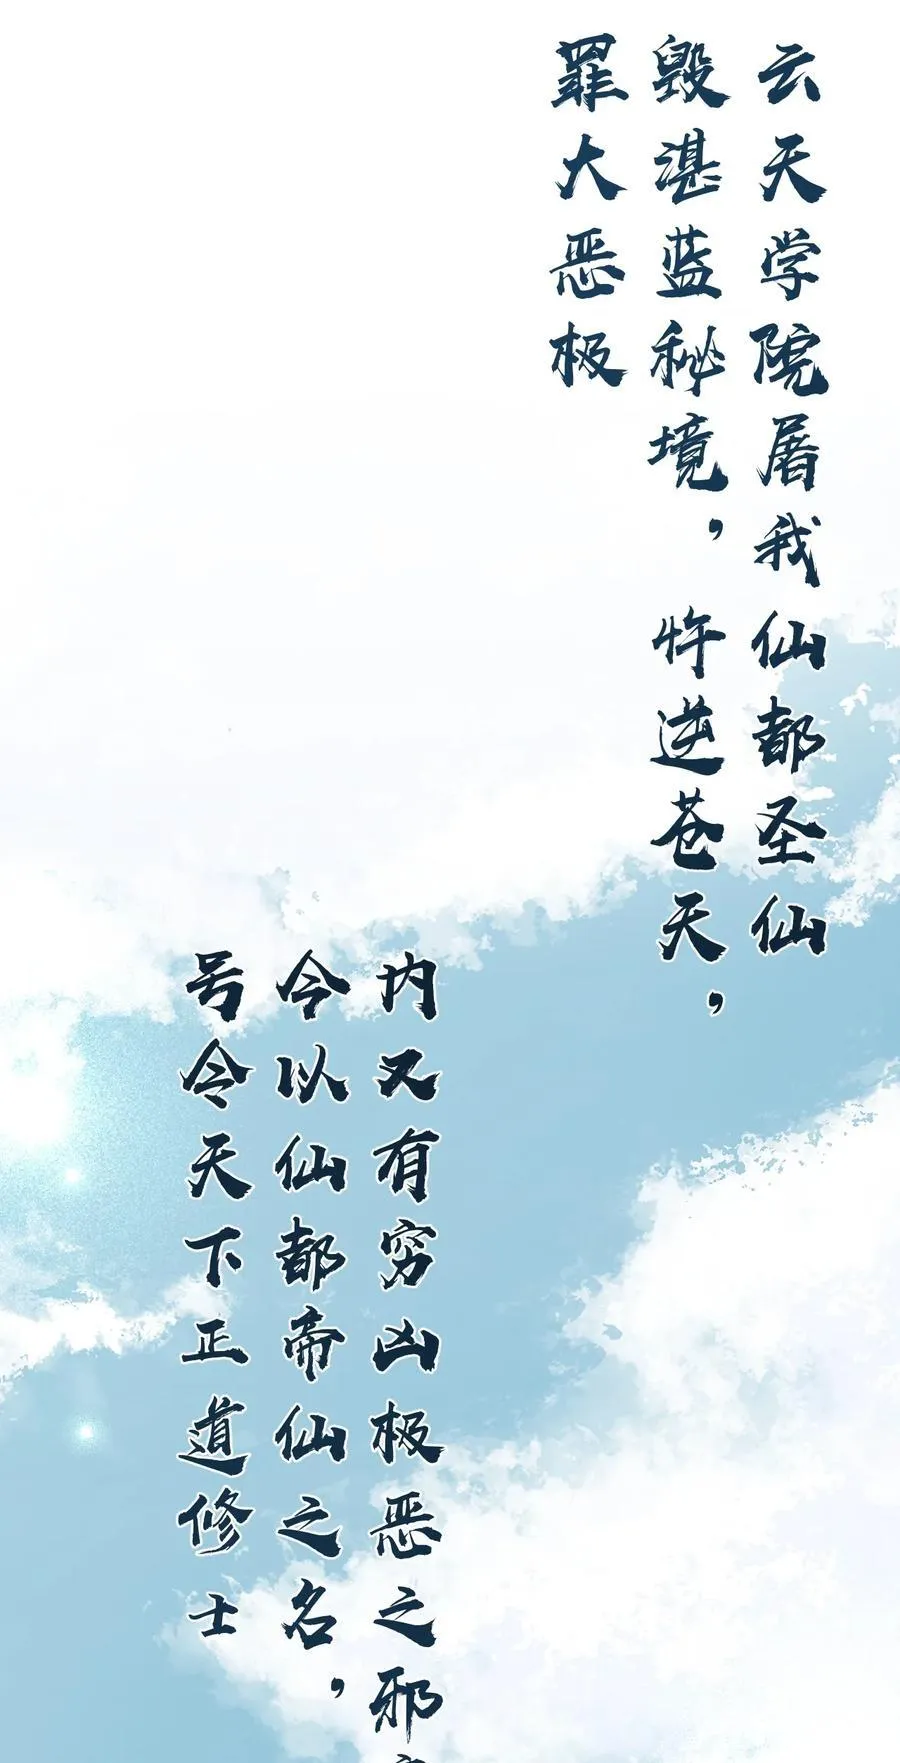 云天学院屠我仙都圣仙
毁湛蓝秘境，忤逆苍天，
罪大恶极
内又有穷凶极恶之邪
今以仙都帝仙之名，
号令天下正道修士